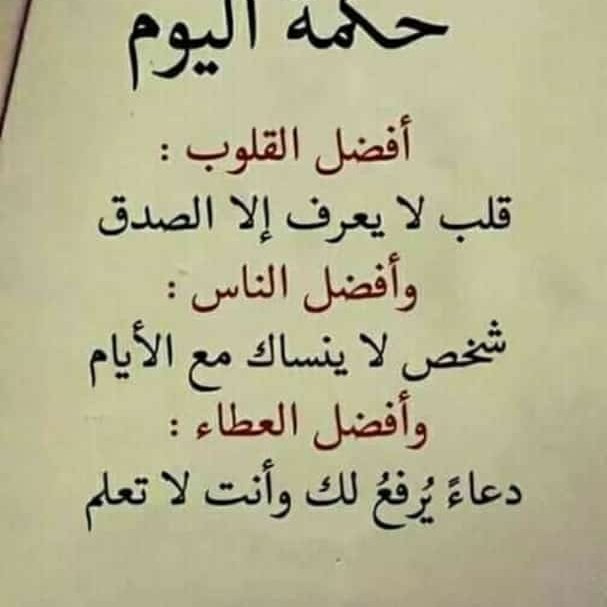 حكمة اليوم
أفضل القلوب :
قلب لا يعرف إلا الصدق
وأفضل الناس :
شخص لا ينساك مع الأيام
وأفضل العطاء :
دعاءً يُرفعُ لك وأنت لا تعلم